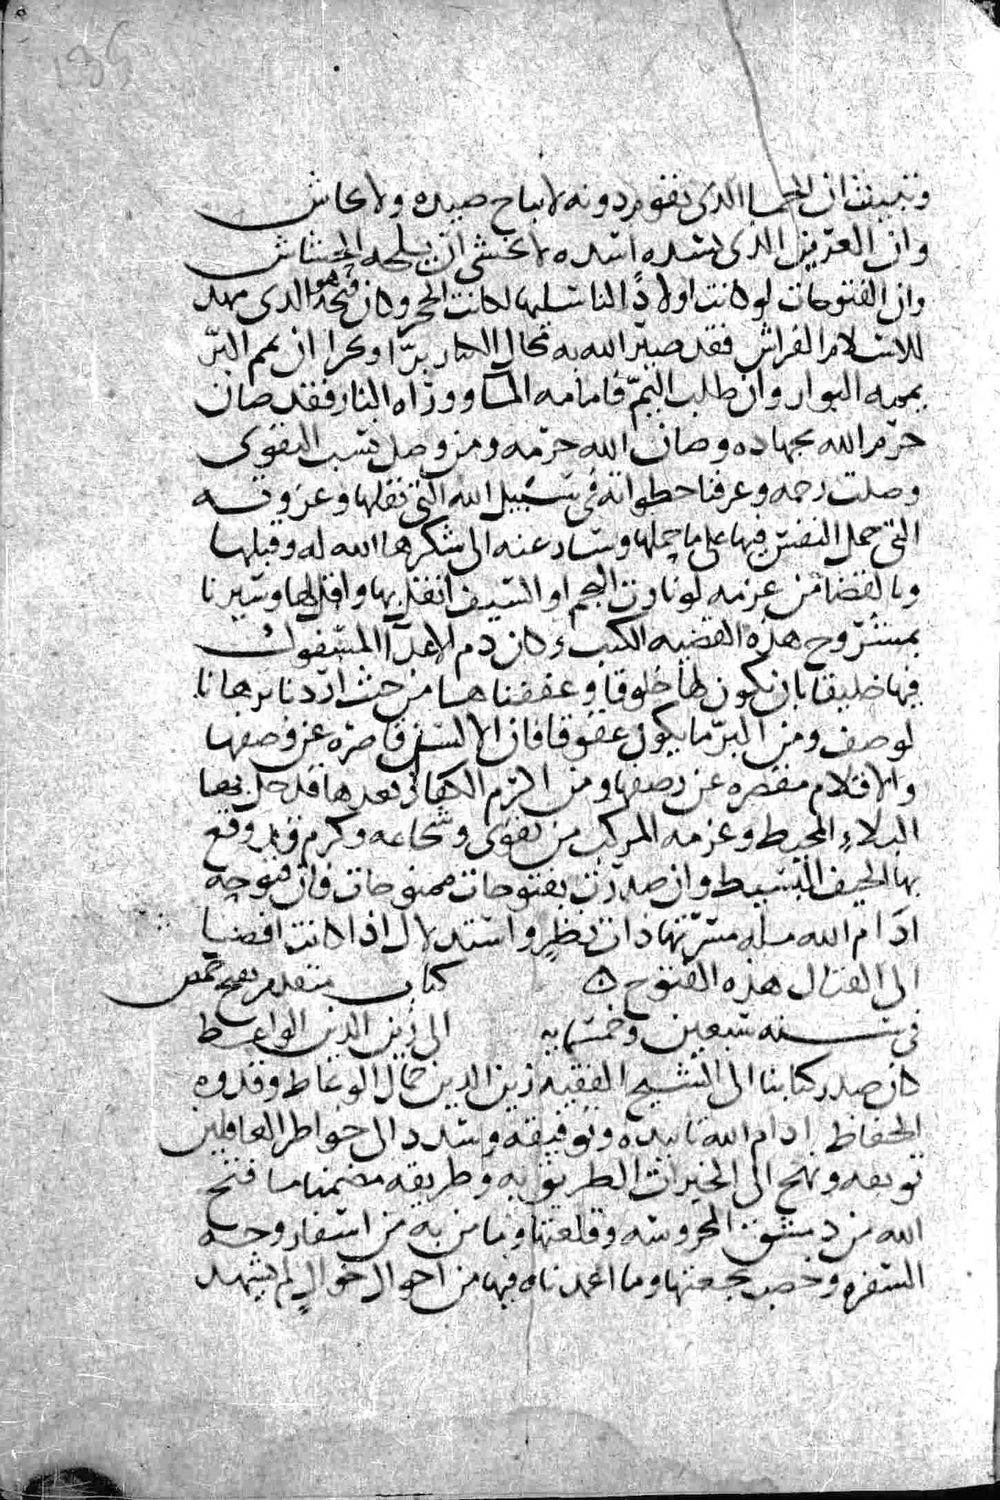 وتبينت ان الحما الذى تقوم دونه لا يباح صيده ولا يحاش
وان العرين الذى يسده اسده لا يخشى ان يلجه الخشاش
وان الفتوحات لو كانت اولادًا لناسليها لكانت الحجر وكان فتحه هو الذى مهد
للاسلام الفراش فقد صير الله به مجال الكفار برًّا وبحرا ان يمم البرّ
يممه البوار وان طلب اليمّ فامامه الماء ووراه النار فقد صان
حرم الله بجهاده وصان الله حرمه ومن وصل نسب التقوى
وصلت رحمه وعرفنا خطواته فى سبيل الله التى نقلها وغزوته
التى حمل النفس فيها على ما حملها وسار عنه الى شكرها الله له وقبلها
وبالقضا من عزمه لو نازت النجم او السيف انفذ بها وافل لها وسيرنا
بمشروح هذه القضيه الكتب وكان دم الاعدا المسفوك
فيها خليقا بان يكون لها خلوقا وعققناها من حيث اردنا برها بان
توصف ومن البر ما يكون عقوقا فان الالسن قاصره عن وصفها
والاقلام مقصره عن رصفها ومن الزم الكفار بعدها قد حل بها
البلاء المحيط وعزمه المركب من تقوى وشجاعه وكرم قد وقع
بها الحيف البسيط وان صدرت بفتوحات ممنوحات فان فتوحه
ادام الله مسرتها ذات نظر واستدلال اذا كانت افضيا
الى القتال هذه الفتوح ه كتاب متقدم بفتح حمص
فى سنه سبعين وخمسمايه الى زين الدين الواعظ
كان صدر كتابنا الى الشيخ الفقيه زين الدين جمال الوعاظ وقدوه
الحفاظ ادام الله تاييده وتوفيقه وسدد الى خواطر الغافلين
تويقه ونهج الى الخيرات الطريق به وطريقه مضمنا ما فتح
الله من دمشق المحروسه وقلعتها وما من به من اسفار وجه
السفره وخصب نجعتها وما اعمدناه فيها من احوال خوال لم يشهد